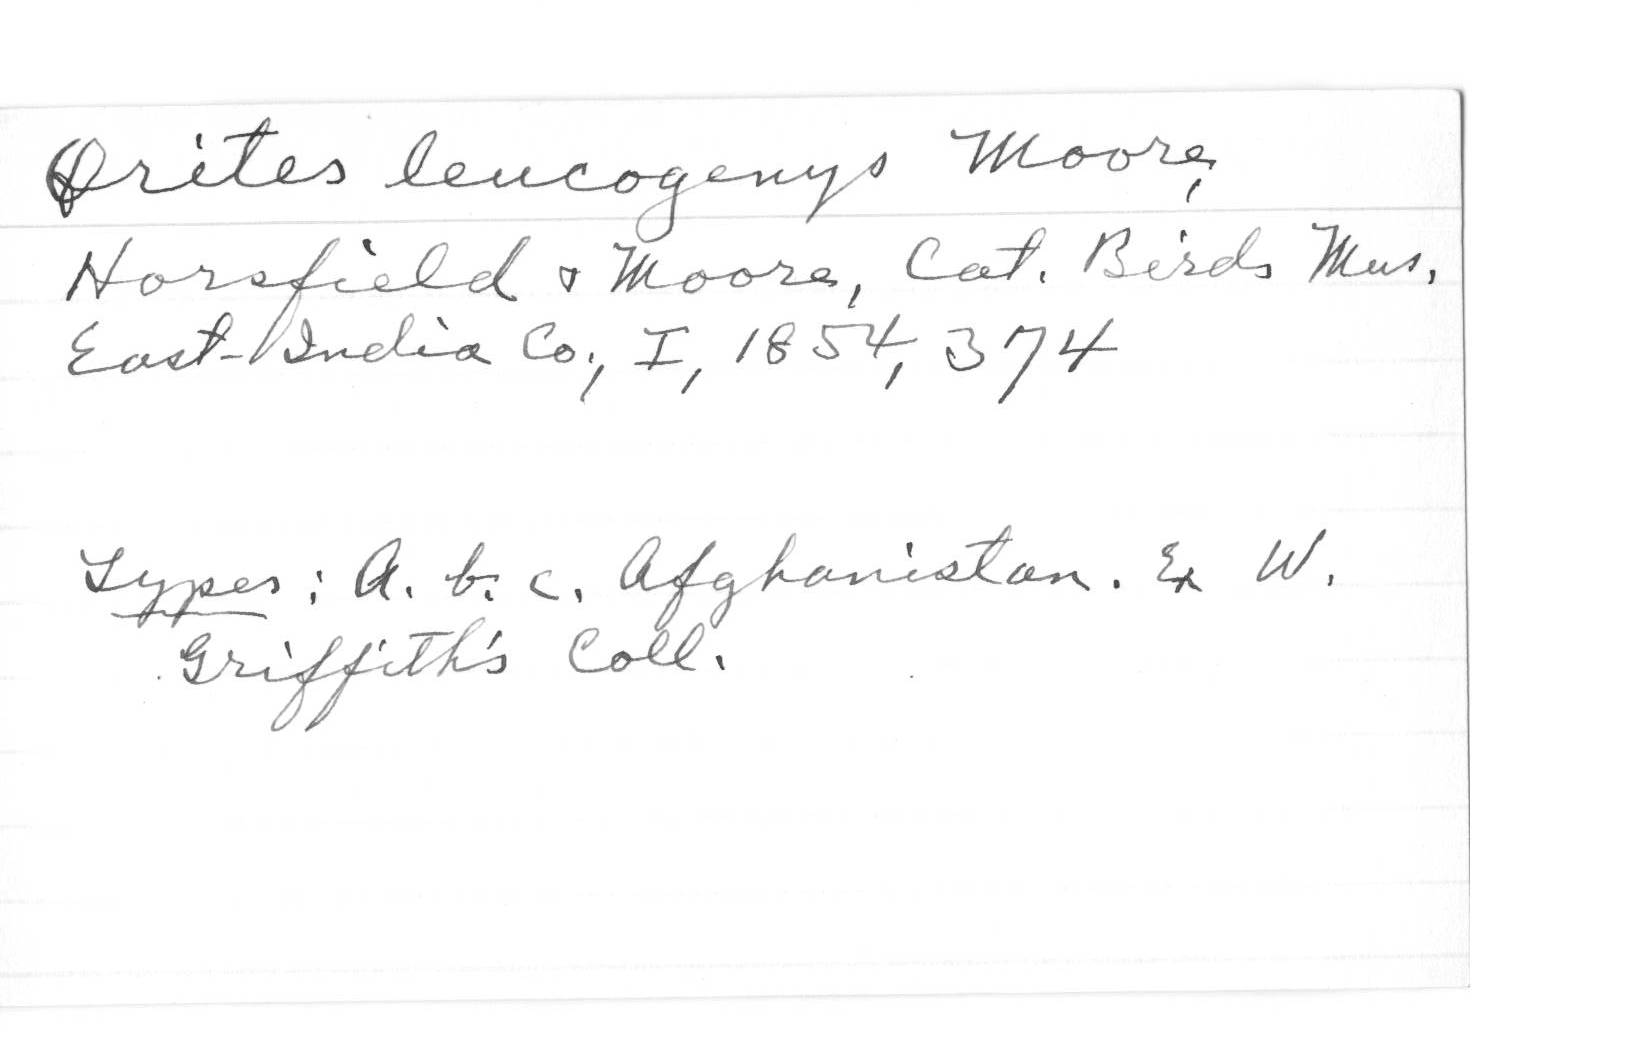 Orites leucogenys Moore,
Horsfield & Moore, Cat. Birds Mus.
East-India Co., I, 1854, 374
Types: A. b. c. Afghanistan. Ex W.
Griffith's Coll.